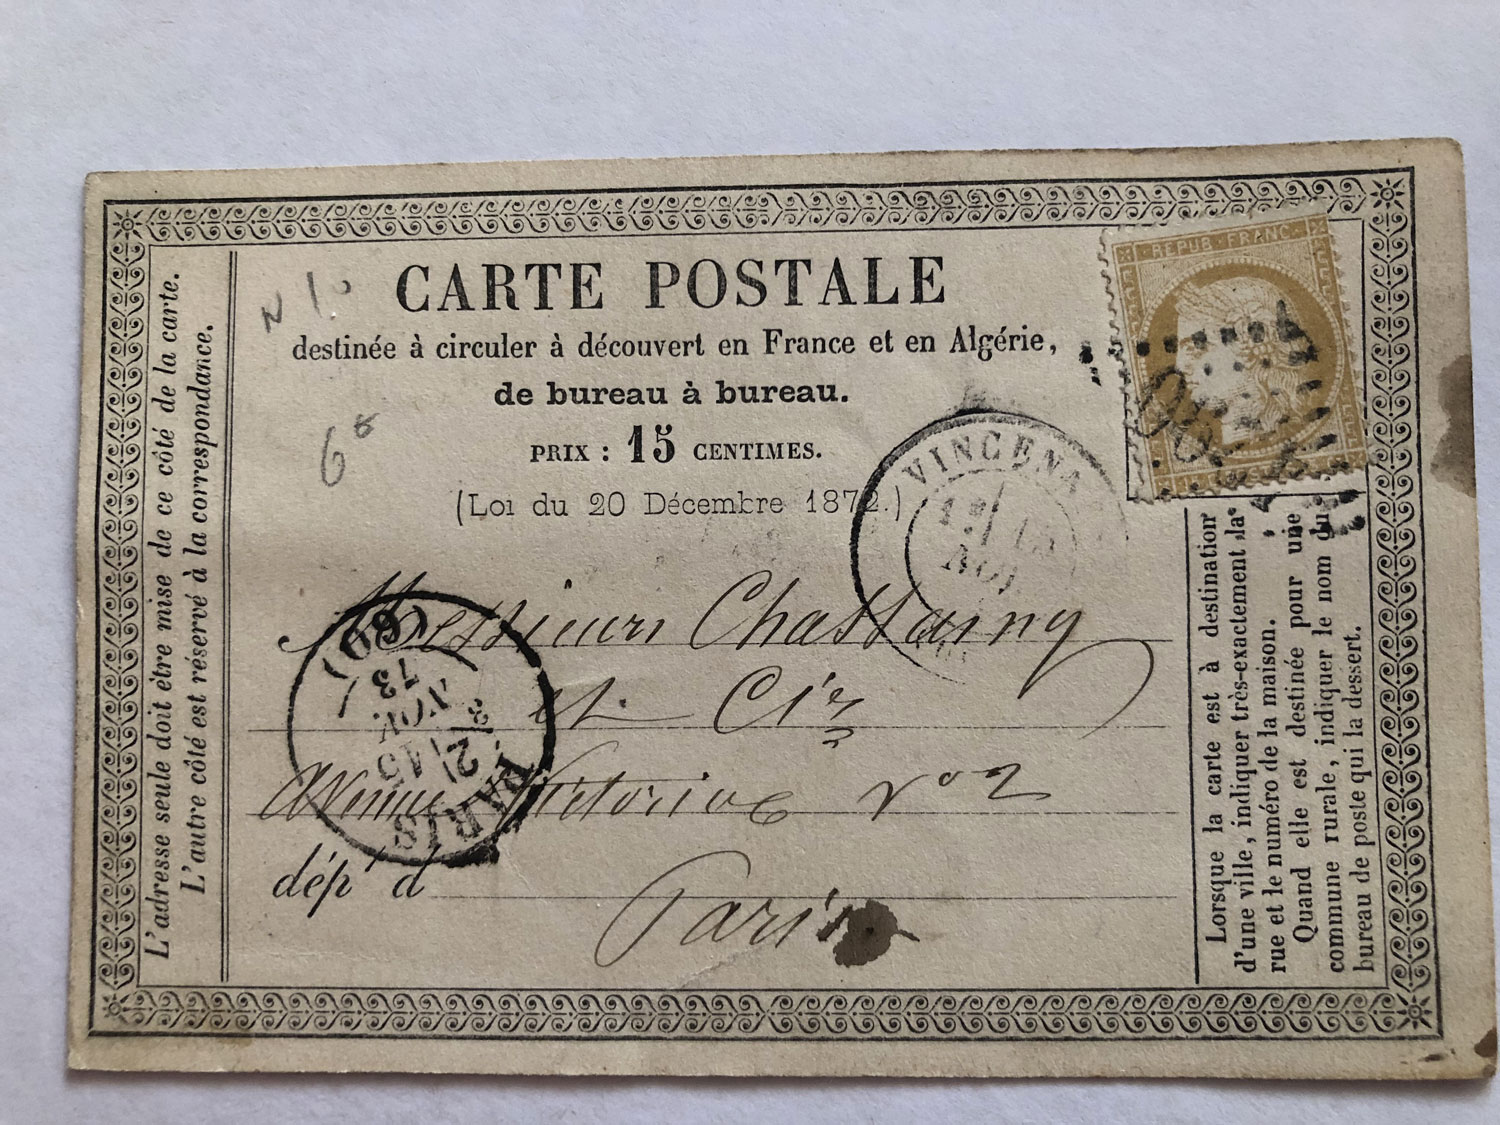 N 10
CARTE POSTALE
destinée à circuler à découvert en France et en Algérie,
de bureau à bureau.
PRIX : 15 CENTIMES.
(Loi du 20 Décembre 1872.)
6
REPUB · FRANC ·
VINCENN
15
NOV
Messieurs Chassaing
et Cie
Avenue Victoria No 2
dépt d
Paris
PARIS
2
15
NOV.
73
(60)
L'adresse seule doit être mise de ce côté de la carte.
L'autre côté est réservé à la correspondance.
Lorsque la carte est à destination
d'une ville, indiquer très-exactement la
rue et le numéro de la maison.
Quand elle est destinée pour une
commune rurale, indiquer le nom du
bureau de poste qui la dessert.